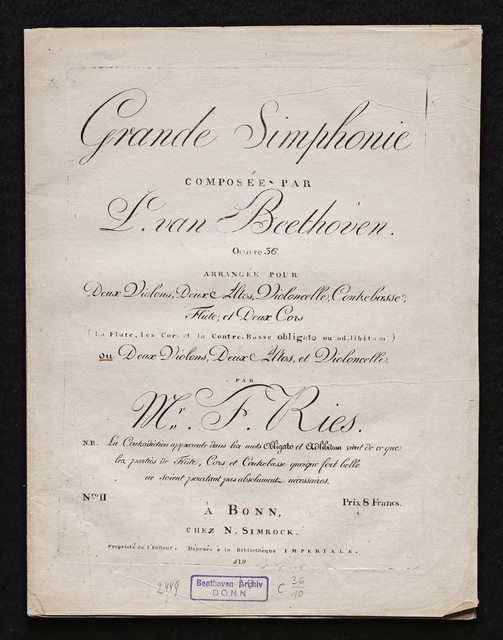 Grande Simphonie
COMPOSÉE PAR
L. van Beethoven.
Oeuvre 36.
ARRANGÉE POUR
Deux Violons, Deux Altos, Violoncelle, Contrebasse,
Flûte, et Deux Cors
(La Flute, les Cors et la Contre-Basse obligato ou ad libitum)
ou Deux Violons, Deux Altos, et Violoncelle.
PAR
Mr. F. Ries.
N.B. La Contradiction apparente dans les mots Obligato et Ad libitum vient de ce que
les parties de Flûte, Cors et Contrebasse quoique fort belle
ne soient pourtant pas absolument nécessaires.
Nro II
Prix 8 Francs.
À BONN,
CHEZ N. SIMROCK.
Propriété de l'éditeur. Déposée à la Bibliothèque IMPERIALE.
519
2449
Beethoven-Archiv
BONN
C 36
10